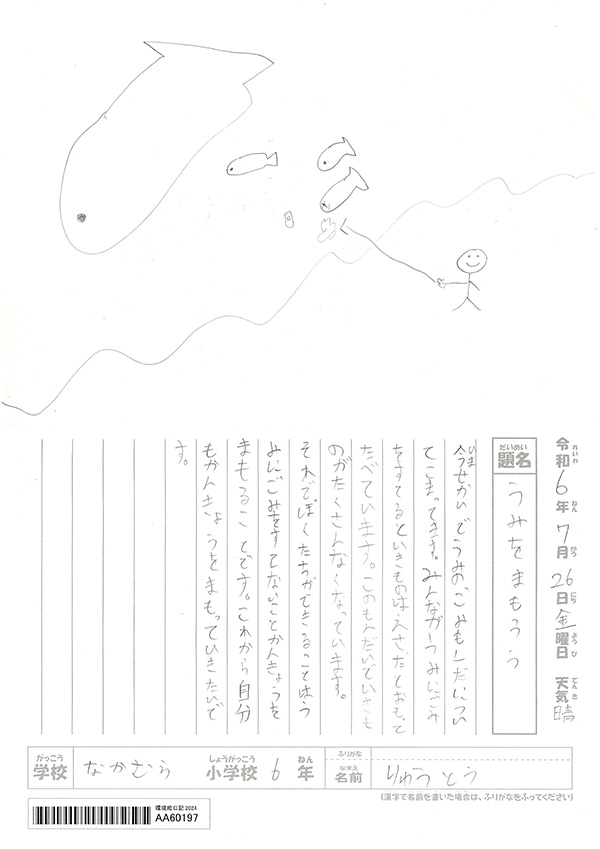 令和6年7月26日金曜日 天気 晴
れいわ ねん がつ にち ようび てんき
だいめい
題名 うみをまもうう
いま
今せかいでうみのごみもんだいについ
てこまってきます。みんながうみにごみ
をすてるといきものはえさだとおもって
たべています。このもんだいでいきも
のがたくさんなくなっています。
それでぼくたちができることはう
みにごみをすてないことかんきょうを
まもることです。これから自分
もかんきょうをまもっていきたいで
す。
がっこう しょうがっこう ねん ふりがな
学校 なかむら 小学校 6年
なまえ
名前 りゅうとう
(漢字で名前を書いた場合は、ふりがなをふってください)
環境絵日記2024
AA60197